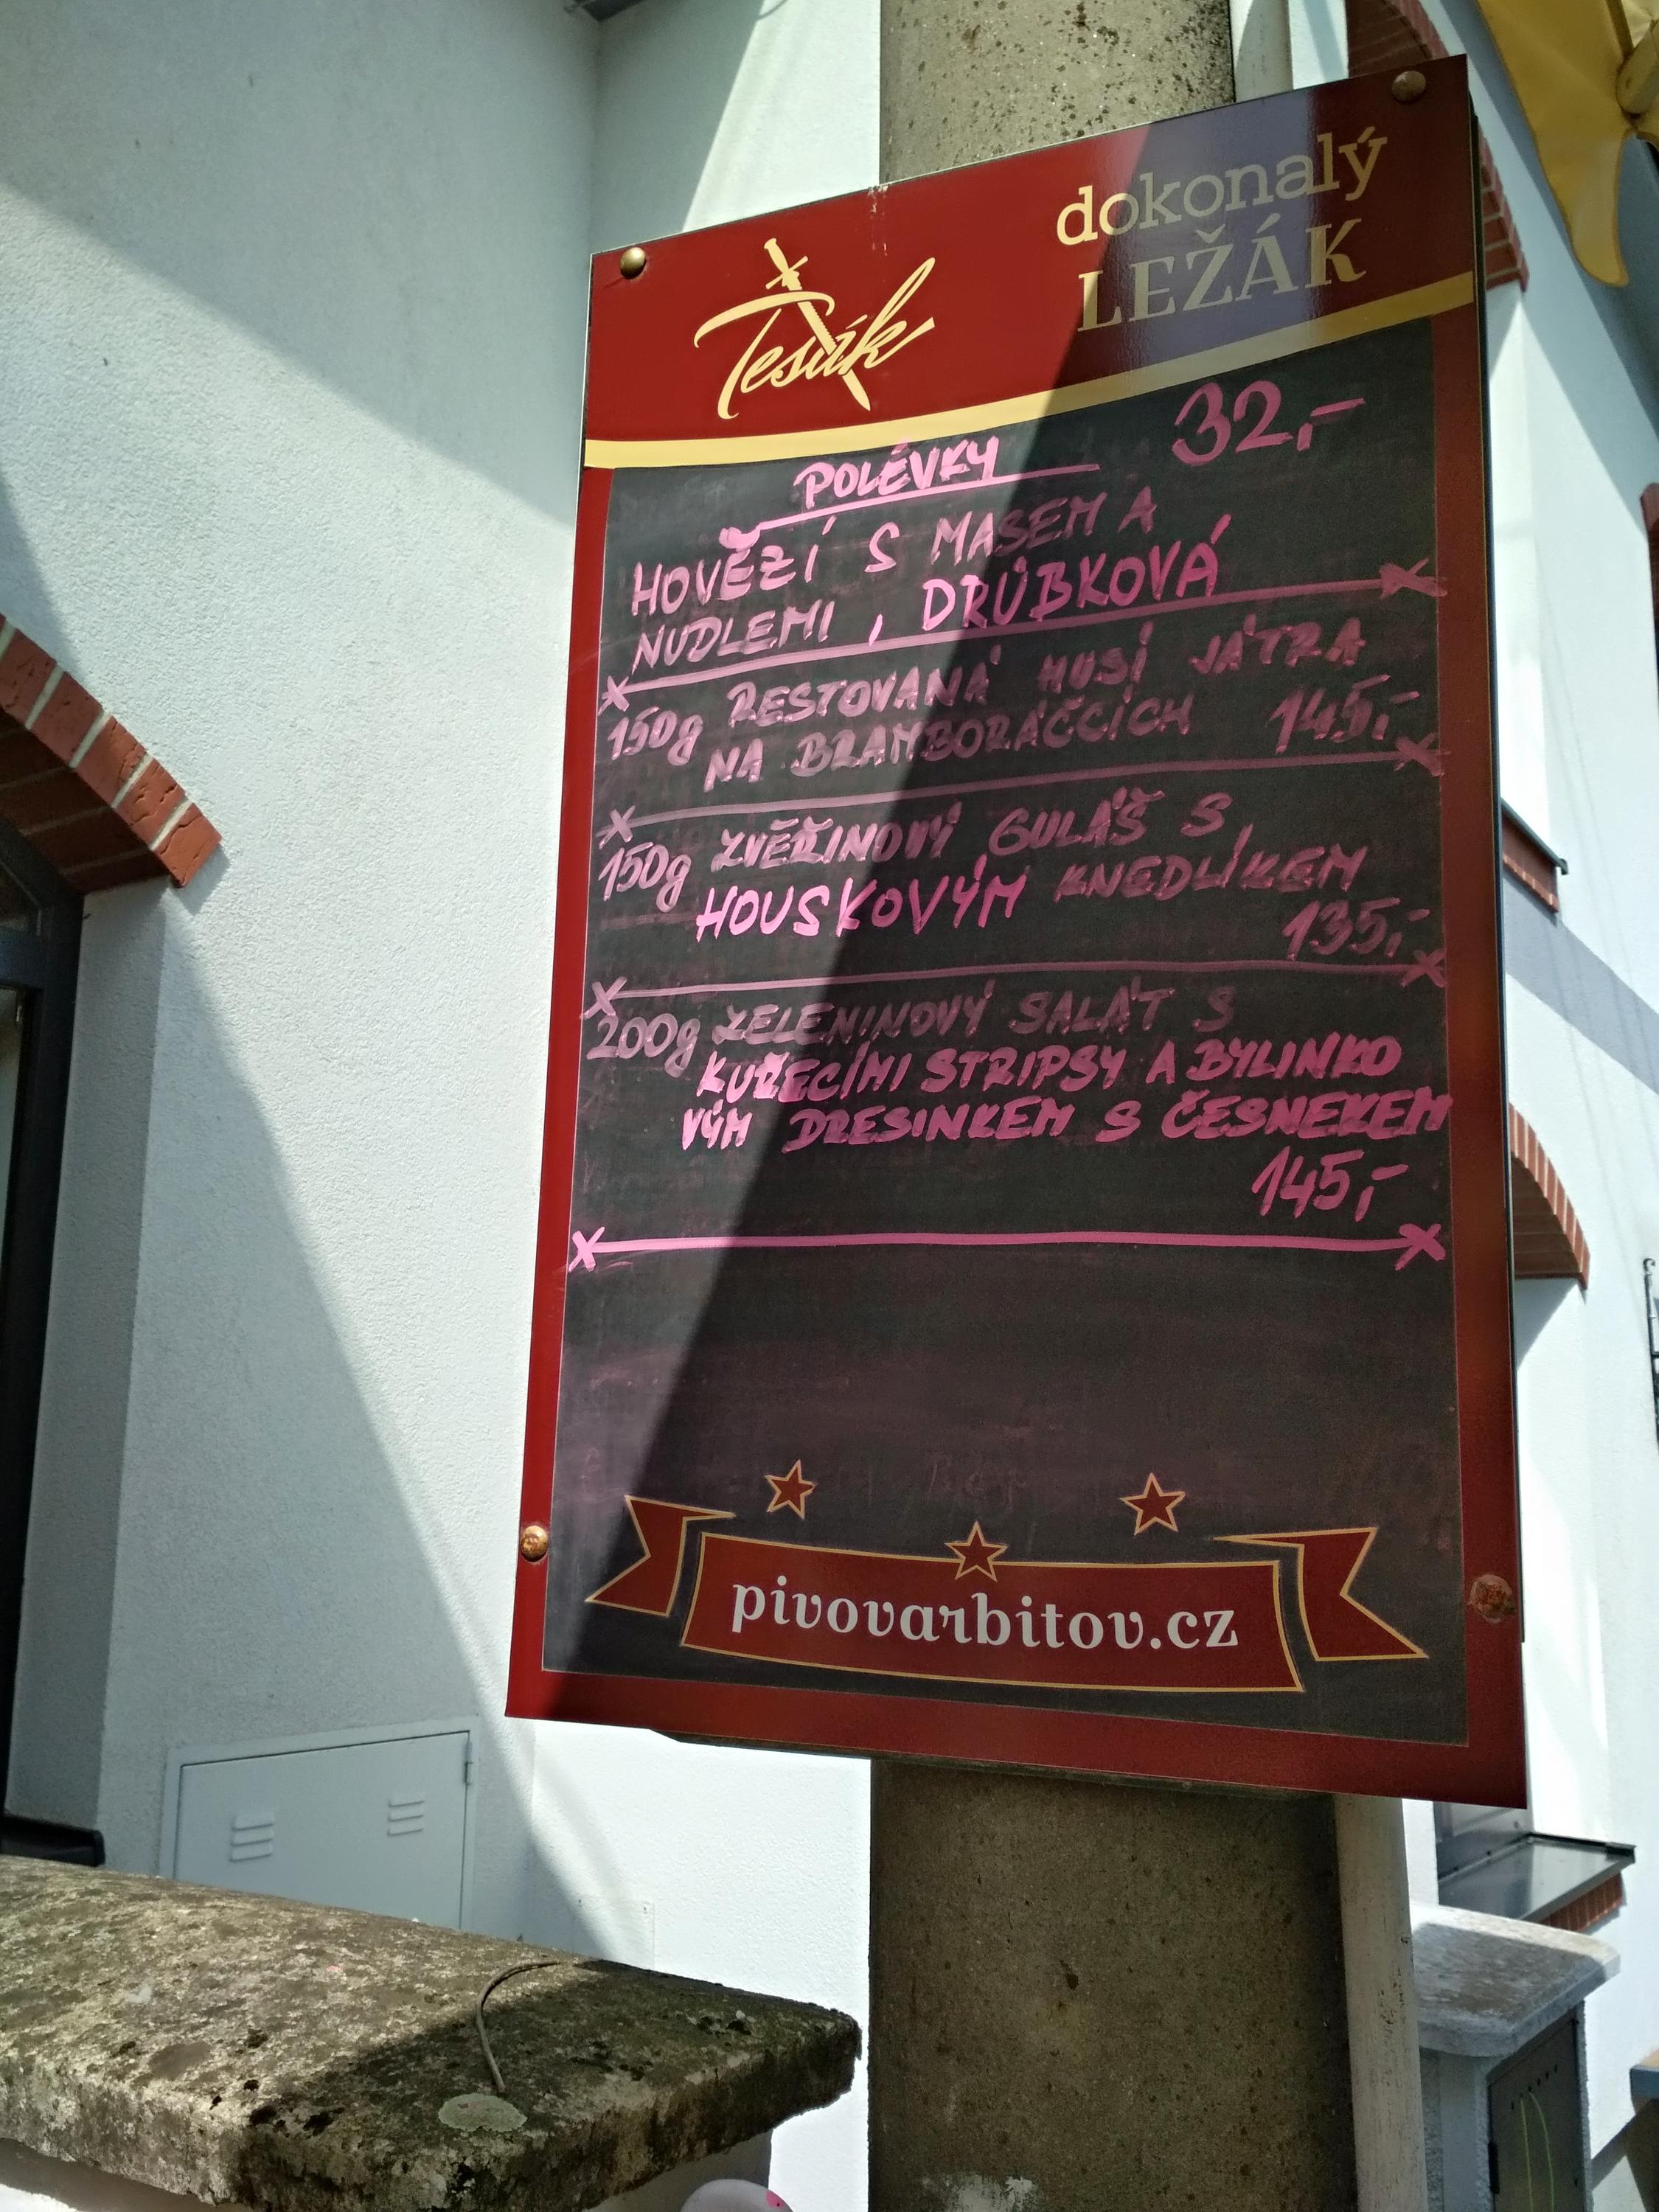 Tesák
dokonalý
LEŽÁK
POLÉVKY 32,-
HOVĚZÍ S MASEM A
NUDLEMI, DRŮBKOVÁ
150g RESTOVANÁ HUSÍ JÁTRA
NA BRAMBORÁČCÍCH 145,-
150g ZVĚŘINOVÝ GULÁŠ S
HOUSKOVÝM KNEDLÍKEM
135,-
200g ZELENINOVÝ SALÁT S
KUŘECÍMI STRIPSY A BYLINKO
VÝM DRESINKEM S ČESNEKEM
145,-
pivovarbitov.cz